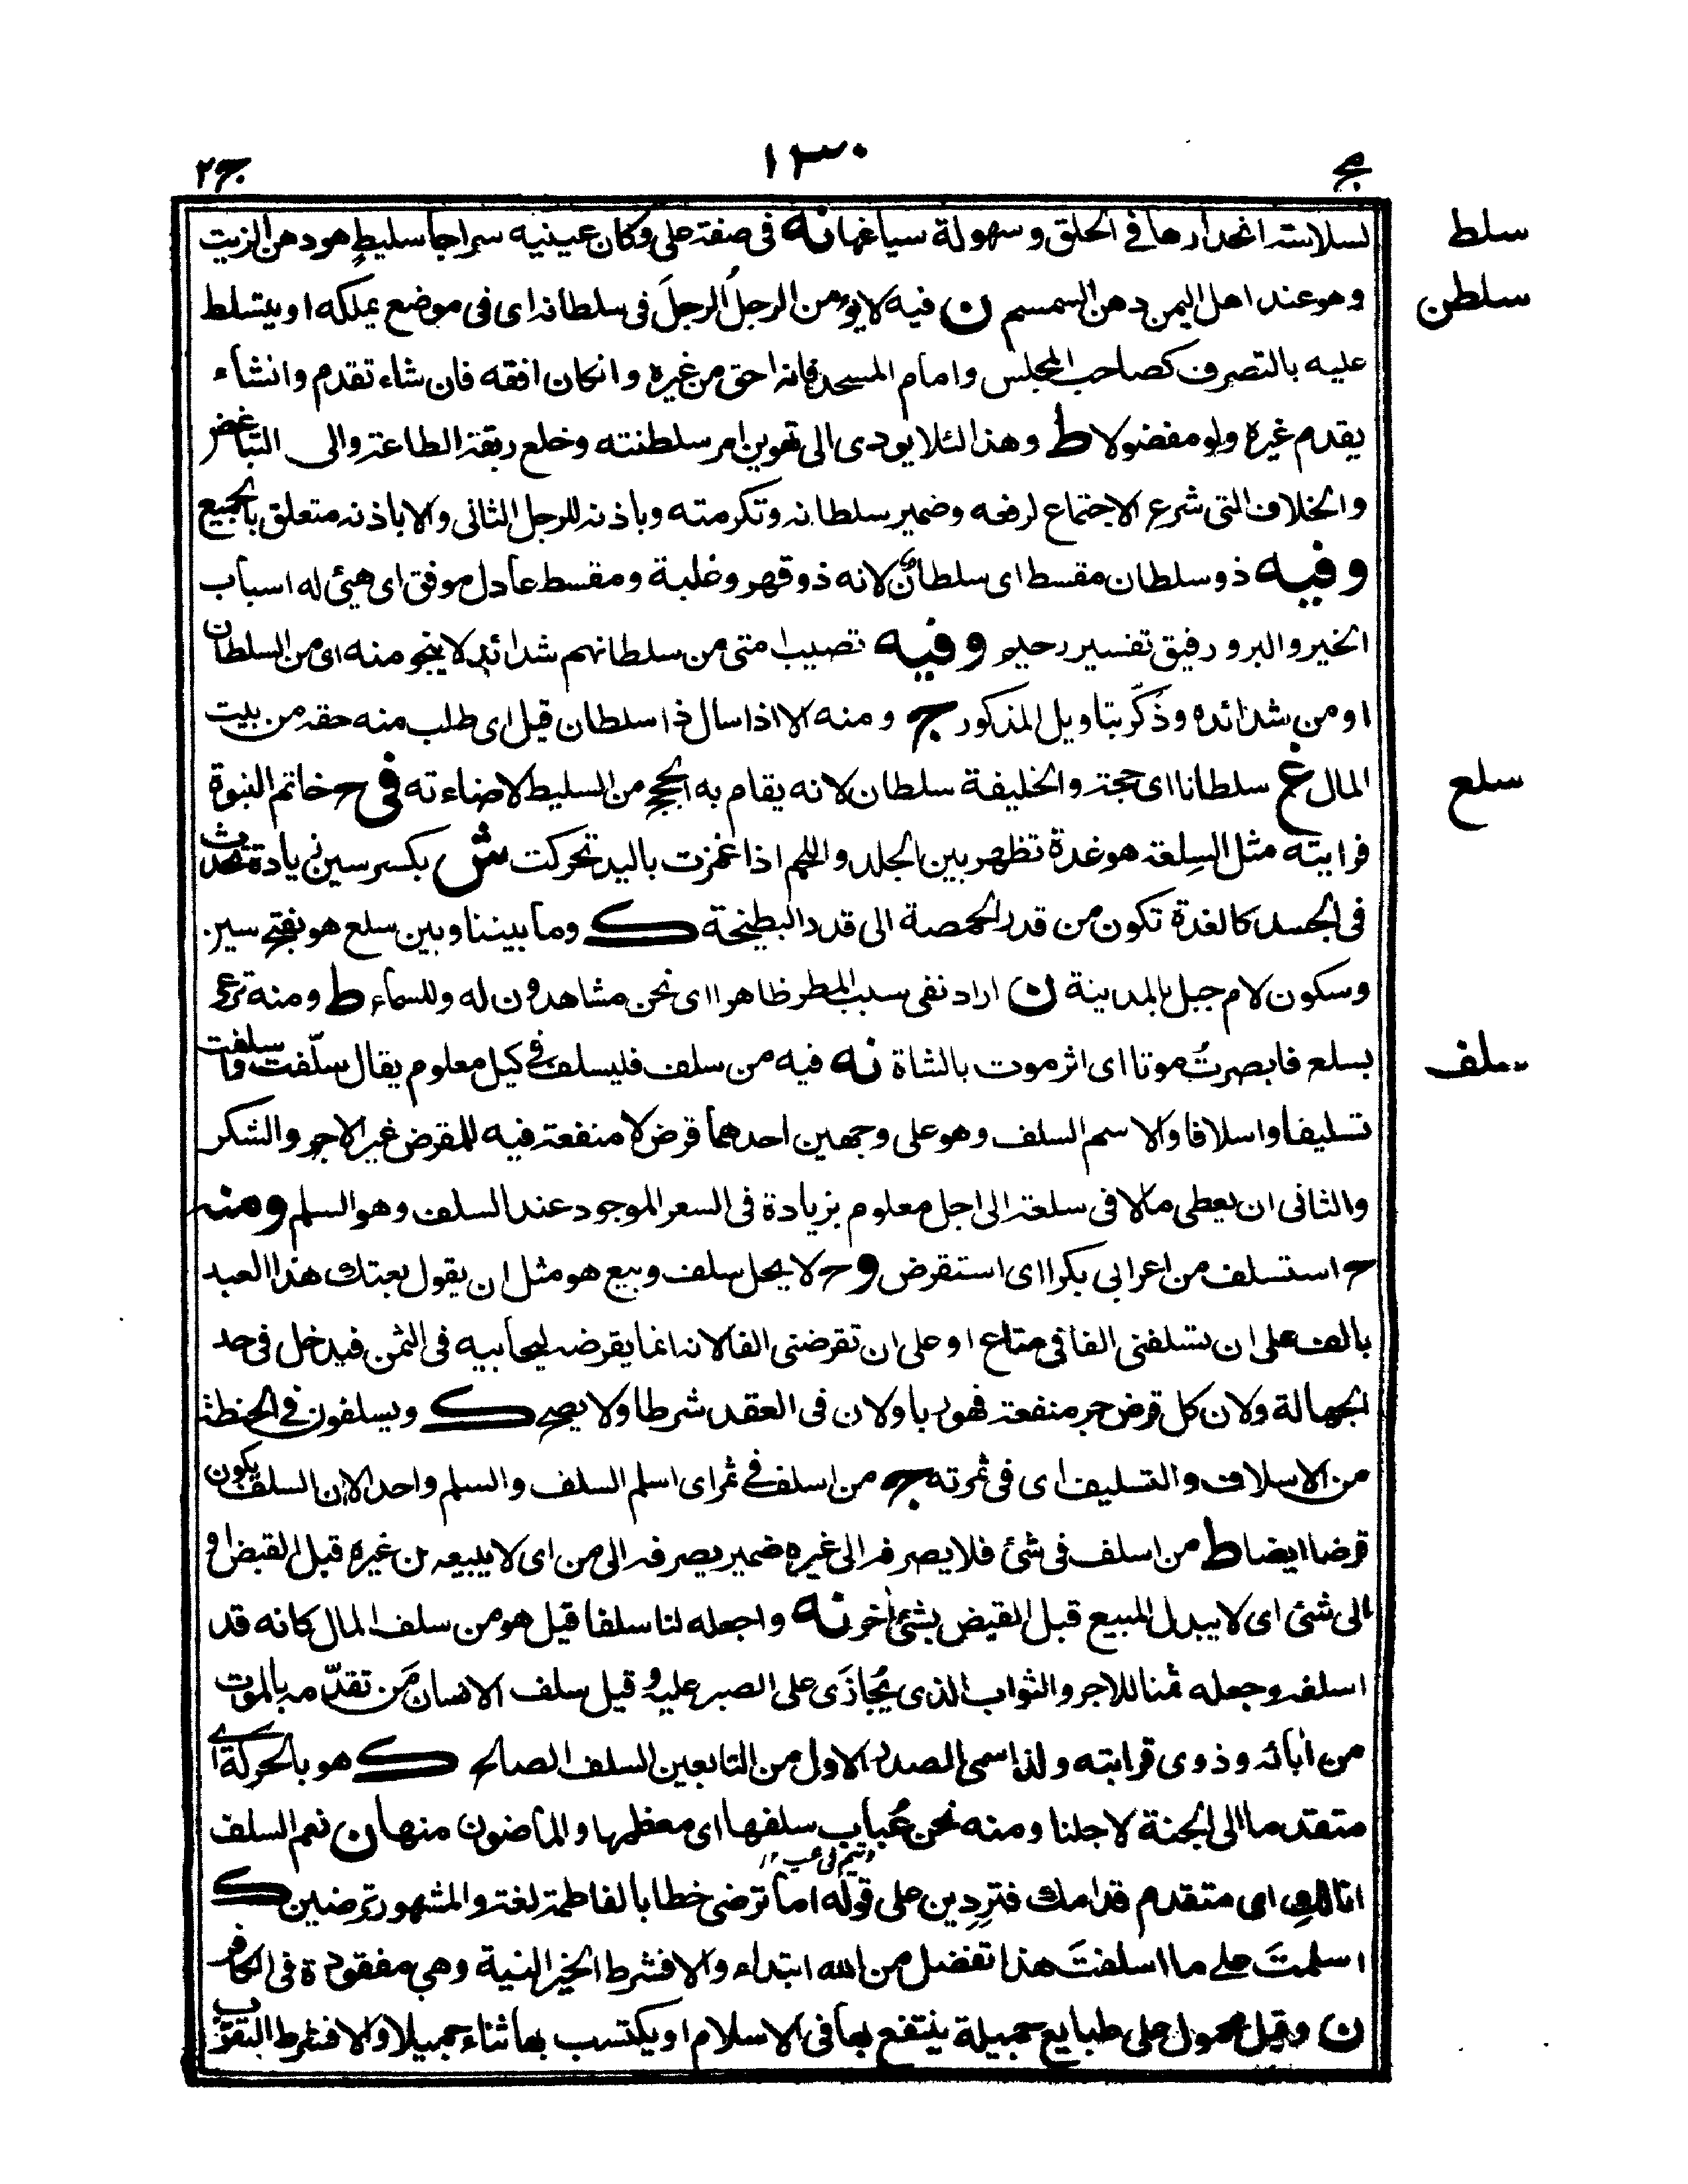 مج ١٣٠ ج٢
لسلاسته انحدارها فى الحلق و سهولة سياغها نه فى صفة على وكان عينيه سراجا سليط هو دهن الزيت
سلط
وهو عند اهل اليمن دهن السمسم ن فيه لا يؤمن الرجلُ الرجلَ فى سلطانه اى فى موضع يملكه او يتسلط
سلطن
عليه بالتصرف كصاحب المجلس وامام المسجد فانه احق من غيره وانكان افقه فان شاء تقدم وانشاء
يقدم غيره ولو مفضولا ط وهذا لئلا يودى الى تهوين امر سلطنته وخلع ربقة الطاعة والى التباغض
والخلاف التى شرع الاجتماع لرفعه وضمير سلطانه وتكرمته وباذنه للرجل الثانى والا باذنه متعلق بالجميع
وفيه ذو سلطان مقسط اى سلطان لانه ذو قهر وغلبة ومقسط عادل موفق اى هيئ له اسباب
الخير والبر و رفيق تفسير رحيم وفيه تصيب امتى من سلطانهم شدائد لا ينجو منه اى من السلطان
او من شدائده وذُكّر بتاويل المذكور ج ومنه الا اذا سال ذا سلطان قيل اى طلب منه حقه من بيت
المال غ سلطانا اى حجة والخليفة سلطان لانه يقام به الحجج من السليط لاضاءته فى ح خاتم النبوة
سلع
فرايته مثل السِلعة هو غدة تظهر بين الجلد واللحم اذا غمزت باليد تحركت ش بكسر سين زيادة تحدث
فى الجسد كالغدة تكون من قدر الحمصة الى قدر البطيخة ك وما بيننا وبين سلع هو بفتح سين
وسكون لام جبل بالمدينة ن اراد نفى سبب المطر ظاهرا اى نحن مشاهدون له وللسماء ط ومنه ترعى
بسلع فابصرتْ موتا اى اثر موت بالشاة نه فيه من سلف فليسلف فى كيل معلوم يقال سلّفت واسلفت
سلف
تسليفا واسلافا والاسم السلف وهو على وجهين احدهما قرض لا منفعة فيه للمقرض غير الاجر والشكر
والثانى ان يعطى مالا فى سلعة الى اجل معلوم بزيادة فى السعر الموجود عند السلف وهو السلم ومنه
ح استسلف من اعرابى بكرا اى استقرض وح لا يحل سلف وبيع هو مثل ان يقول بعتك هذا العبد
بالف على ان تسلفنى الفا فى متاع او على ان تقرضنى الفا لانه انما يقرضه ليحابيه فى الثمن فيدخل فى حد
الجهالة ولان كل قرض جر منفعة فهو ربا ولان فى العقد شرطا ولا يصح ك ويسلفون فى الحنطة
من الاسلاف والتسليف اى فى ثمرته ج من اسلف فى ثمر اى اسلم السلف والسلم واحد الا ان السلف يكون
قرضا ايضا ط من اسلف فى شئ فلا يصرفه الى غيره ضمير يصرفه الى من اى لا يبيعه من غيره قبل القبض او
الى شئ اى لا يبدل المبيع قبل القبض بشئ آخر نه واجعله لنا سلفا قيل هو من سلف المال كانه قد
اسلفه وجعله ثمنا للاجر والثواب الذى يُجازَى على الصبر عليه و قيل سلف الانسان مَن تقدّمه بالموت
من آبائه وذوى قرابته ولذا سمى الصدر الاول من التابعين السلف الصالح ك هو بالحركة اى
متقدما الى الجنة لاجلنا ومنه نحن عُباب سلفها اى معظمها والماضون منها ن نعم السلف
وتيم فى عب ١٢
انا لكِ اى متقدم قدامك فتردين على قوله اما ترضى خطابا لفاطمة لغة والمشهور ترضين ك
اسلمتَ على ما اسلفتَ هذا تفضل من الله ابتداء والا فشرط الخير النية وهى مفقودة فى الكافر
ن وقيل محمول على طبايع جميلة ينتفع بها فى الاسلام او يكتسب بها ثناء جميلا والا فشرط التقرب